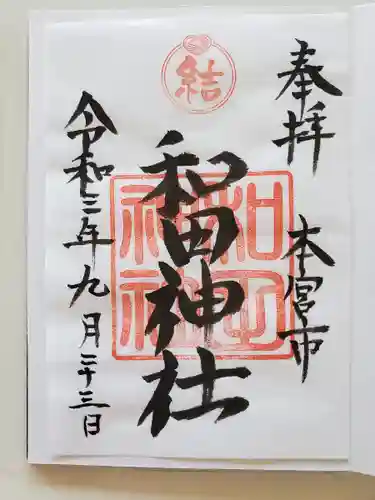 奉拝
本宮市
結
和田神社
和田神社
令和三年九月二十三日